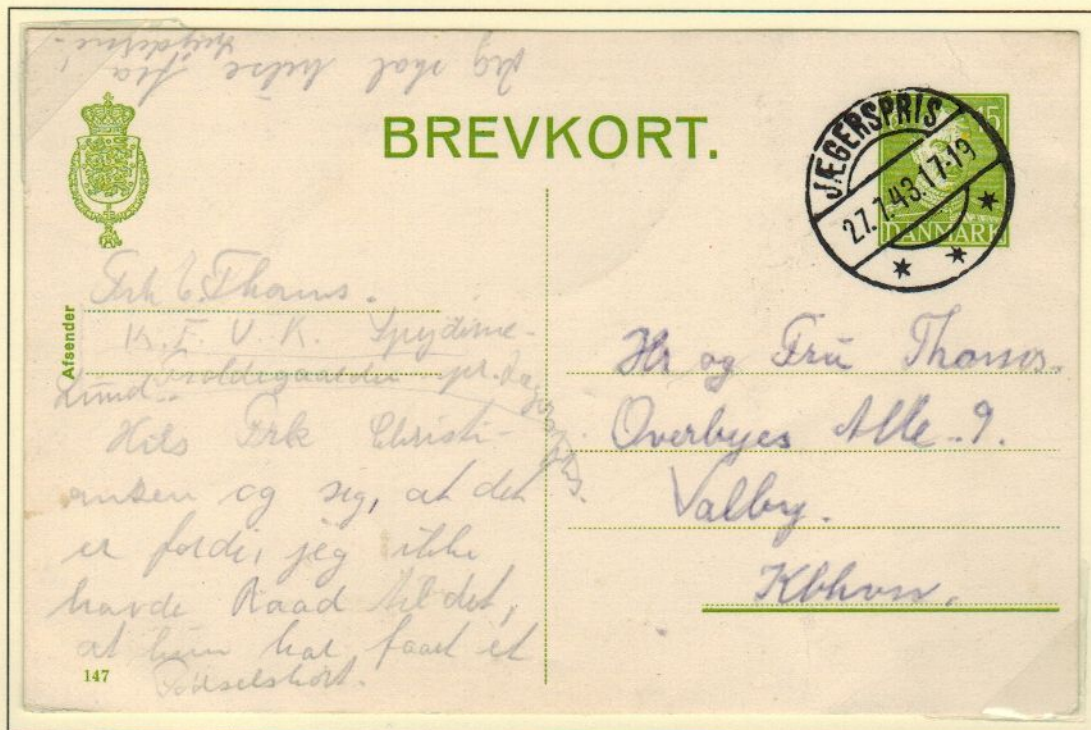 Jeg skal hilse fra
BREVKORT.
JÆGERSPRIS
27.7.43.17-19
15
DANMARK
Afsender
Frk E. Thoms.
K. F. U. K. Spejderne-
Lund. pr. Jægerspris.
Hils Frk Christi-
ansen og sig, at det
er fordi, jeg ikke
havde Raad til det,
at hun har faaet et
Fødselskort.
147
Hr og Fru Thoms.
Overbyes Alle. 9.
Valby.
Kbhvn.